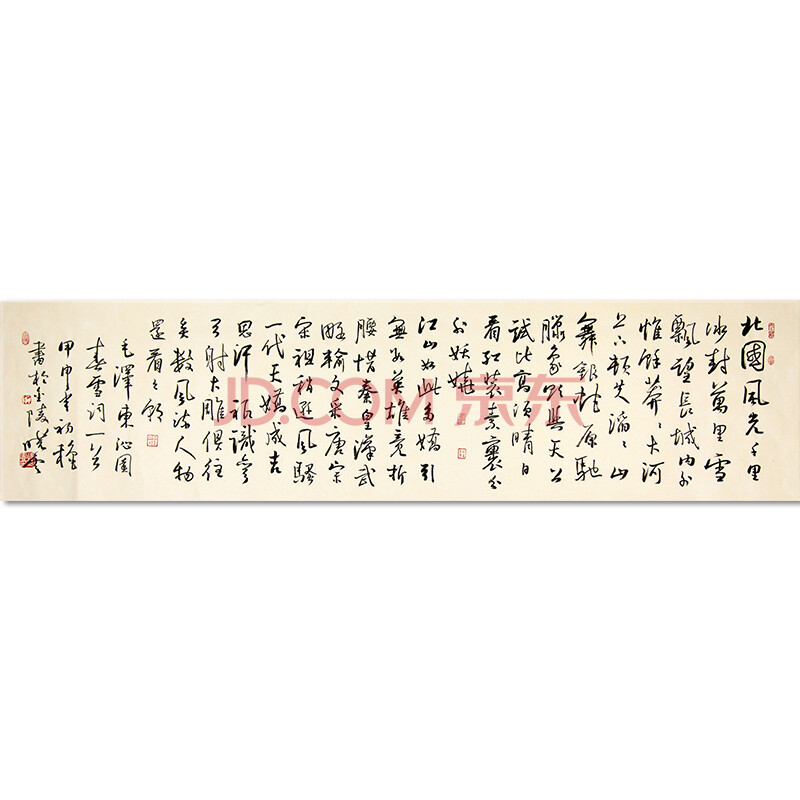 北國風光千里
冰封萬里雪
飄望長城內外
惟餘莽〻大河
上下頓失滔〻山
舞銀蛇原馳
臘象欲與天公
試比高須晴日
看紅裝素裹分
外妖嬈
江山如此多嬌引
無數英雄競折
腰惜秦皇漢武
略輸文采唐宗
宋祖稍遜風騷
一代天驕成吉
思汗祇識彎
弓射大雕俱往
矣數風流人物
還看今朝
毛澤東沁園
春雪詞一首
甲申年初穐
書於金陵
JD.COM 京东